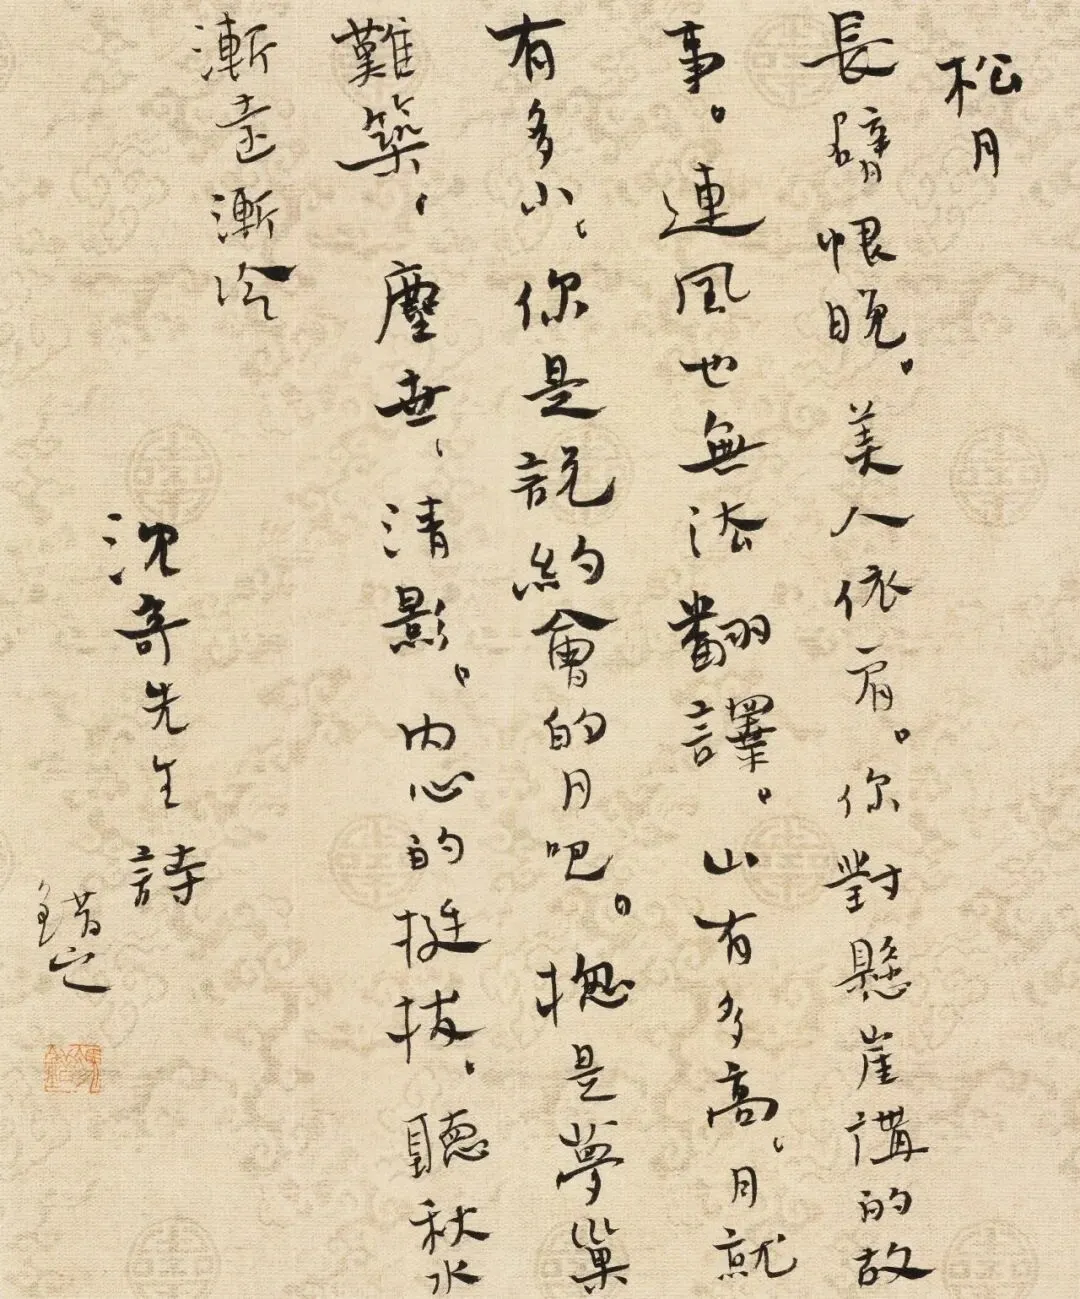 松月
長臂恨晚。美人依肩。你對懸崖講的故
事。連風也無法翻譯。山有多高、月就
有多小、你是說約會的月吧。揔是夢巢
難築，塵世、清影。内心的挺拔、聽秋水
漸走漸冷
沈奇先生詩
錯之